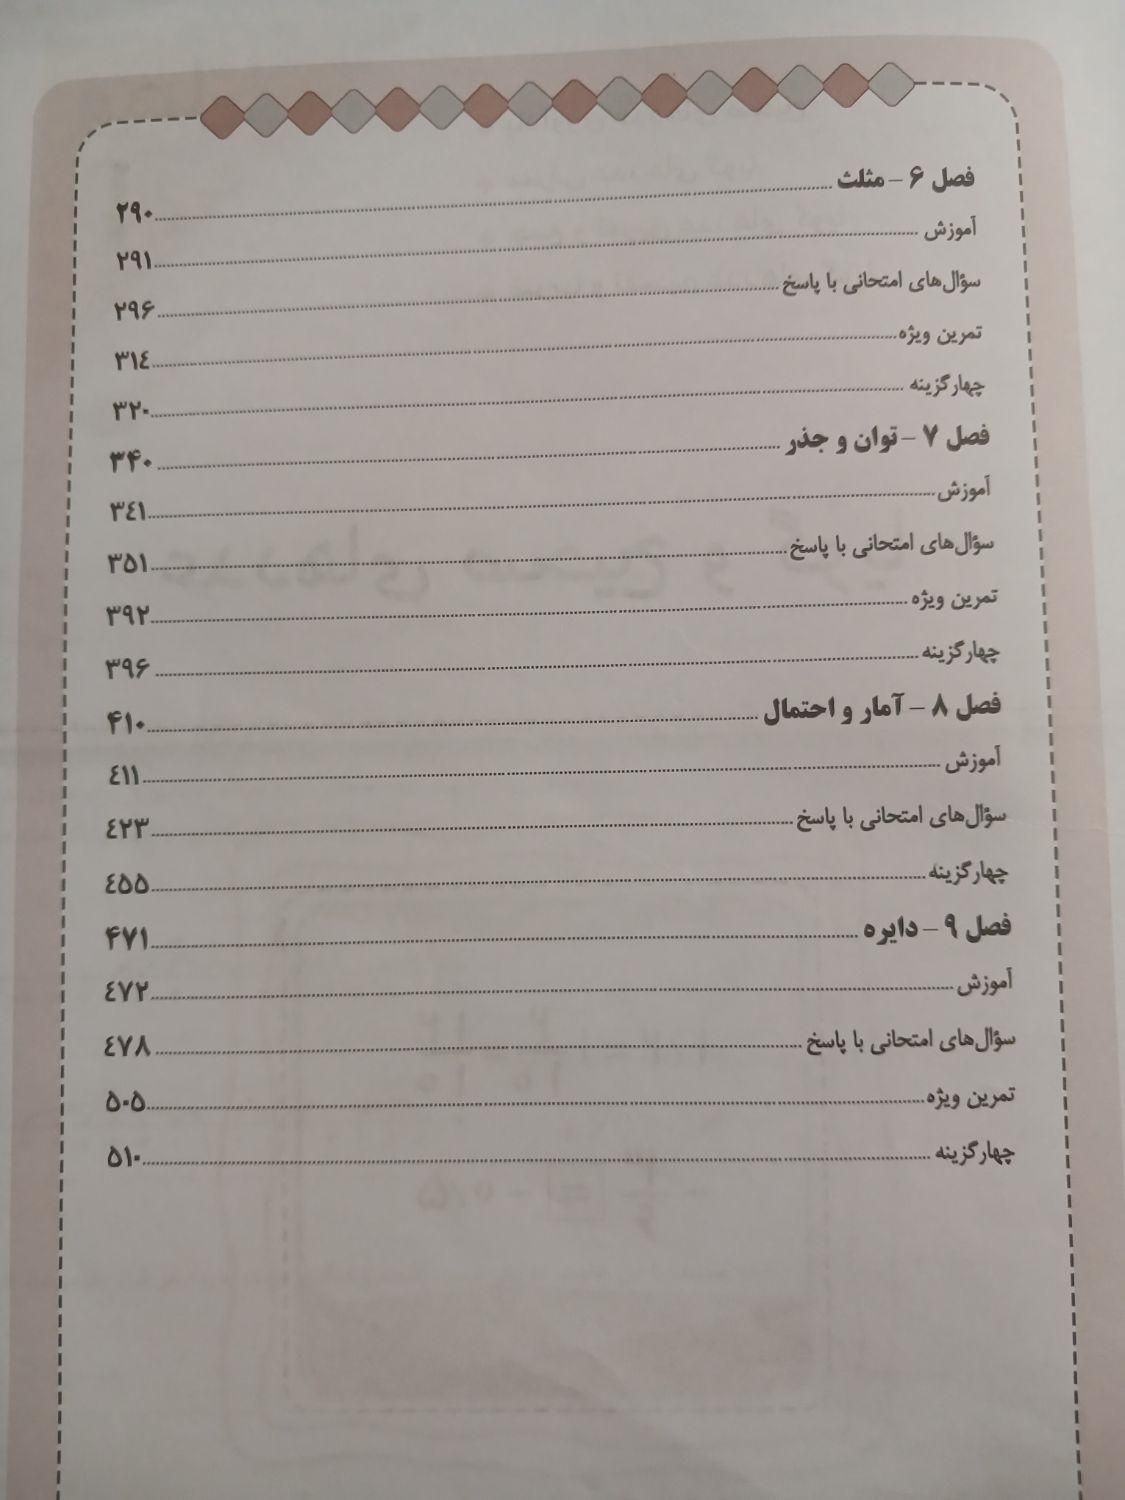 فصل ۶ – مثلث ........ ۲۹۰
آموزش ........ ۲۹۱
سؤال‌های امتحانی با پاسخ ........ ۲۹۶
تمرین ویژه ........ ۳۱٤
چهارگزینه ........ ۳۲۰
فصل ۷ – توان و جذر ........ ۳۴۰
آموزش ........ ۳٤۱
سؤال‌های امتحانی با پاسخ ........ ۳۵۱
تمرین ویژه ........ ۳۹۲
چهارگزینه ........ ۳۹۶
فصل ۸ – آمار و احتمال ........ ۴۱۰
آموزش ........ ٤۱۱
سؤال‌های امتحانی با پاسخ ........ ٤۲۳
چهارگزینه ........ ٤۵۵
فصل ۹ – دایره ........ ۴۷۱
آموزش ........ ٤۷۲
سؤال‌های امتحانی با پاسخ ........ ٤۷۸
تمرین ویژه ........ ۵۰۵
چهارگزینه ........ ۵۱۰